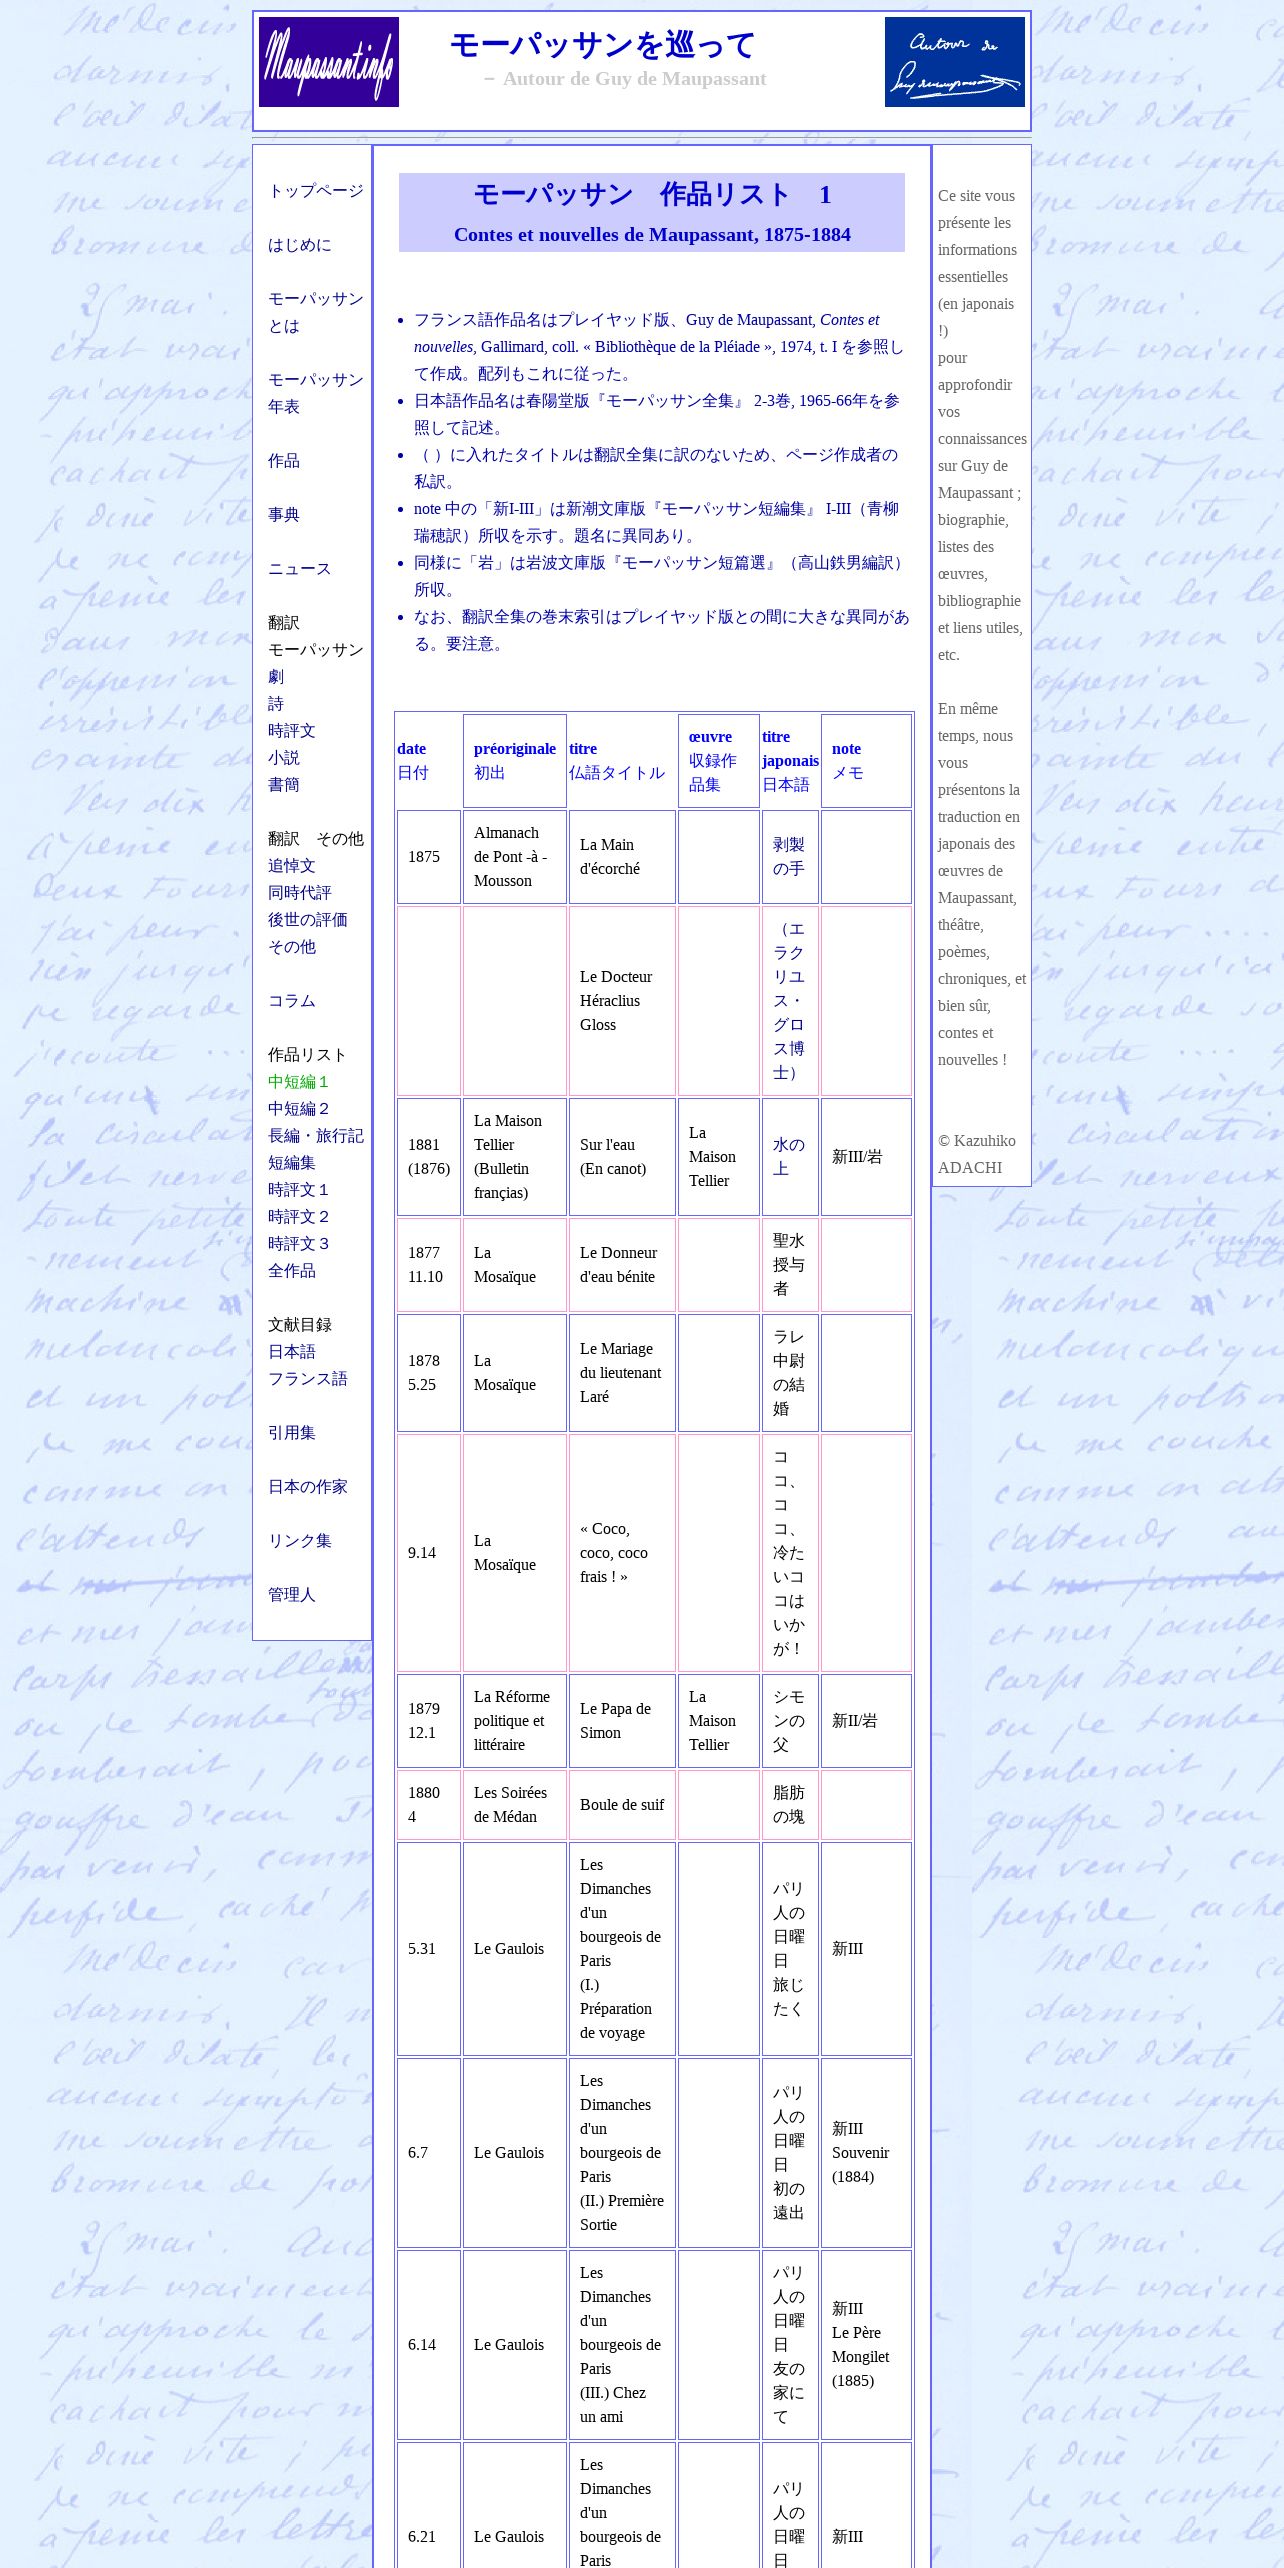 Maupassant.info
モーパッサンを巡って
－ Autour de Guy de Maupassant
Autour de
Guy de Maupassant
トップページ
はじめに
モーパッサン
とは
モーパッサン
年表
作品
事典
ニュース
翻訳
モーパッサン
劇
詩
時評文
小説
書簡
翻訳　その他
追悼文
同時代評
後世の評価
その他
コラム
作品リスト
中短編１
中短編２
長編・旅行記
短編集
時評文１
時評文２
時評文３
全作品
文献目録
日本語
フランス語
引用集
日本の作家
リンク集
管理人
モーパッサン　作品リスト　1
Contes et nouvelles de Maupassant, 1875-1884
フランス語作品名はプレイヤッド版、Guy de Maupassant, Contes et
nouvelles, Gallimard, coll. « Bibliothèque de la Pléiade », 1974, t. I を参照し
て作成。配列もこれに従った。
日本語作品名は春陽堂版『モーパッサン全集』 2-3巻, 1965-66年を参
照して記述。
（ ）に入れたタイトルは翻訳全集に訳のないため、ページ作成者の
私訳。
note 中の「新I-III」は新潮文庫版『モーパッサン短編集』 I-III（青柳
瑞穂訳）所収を示す。題名に異同あり。
同様に「岩」は岩波文庫版『モーパッサン短篇選』（高山鉄男編訳）
所収。
なお、翻訳全集の巻末索引はプレイヤッド版との間に大きな異同があ
る。要注意。
date
日付
préoriginale
初出
titre
仏語タイトル
œuvre
収録作
品集
titre
japonais
日本語
note
メモ
1875
Almanach
de Pont -à -
Mousson
La Main
d'écorché
剥製
の手
Le Docteur
Héraclius
Gloss
（エ
ラク
リユ
ス・
グロ
ス博
士）
1881
(1876)
La Maison
Tellier
(Bulletin
françias)
Sur l'eau
(En canot)
La
Maison
Tellier
水の
上
新III/岩
1877
11.10
La
Mosaïque
Le Donneur
d'eau bénite
聖水
授与
者
1878
5.25
La
Mosaïque
Le Mariage
du lieutenant
Laré
ラレ
中尉
の結
婚
9.14
La
Mosaïque
« Coco,
coco, coco
frais ! »
コ
コ、
コ
コ、
冷た
いコ
コは
いか
が！
1879
12.1
La Réforme
politique et
littéraire
Le Papa de
Simon
La
Maison
Tellier
シモ
ンの
父
新II/岩
1880
4
Les Soirées
de Médan
Boule de suif
脂肪
の塊
5.31
Le Gaulois
Les
Dimanches
d'un
bourgeois de
Paris
(I.)
Préparation
de voyage
パリ
人の
日曜
日
旅じ
たく
新III
6.7
Le Gaulois
Les
Dimanches
d'un
bourgeois de
Paris
(II.) Première
Sortie
パリ
人の
日曜
日
初の
遠出
新III
Souvenir
(1884)
6.14
Le Gaulois
Les
Dimanches
d'un
bourgeois de
Paris
(III.) Chez
un ami
パリ
人の
日曜
日
友の
家に
て
新III
Le Père
Mongilet
(1885)
6.21
Le Gaulois
Les
Dimanches
d'un
bourgeois de
Paris
パリ
人の
日曜
日
新III
Ce site vous
présente les
informations
essentielles
(en japonais
!)
pour
approfondir
vos
connaissances
sur Guy de
Maupassant ;
biographie,
listes des
œuvres,
bibliographie
et liens utiles,
etc.
En même
temps, nous
vous
présentons la
traduction en
japonais des
œuvres de
Maupassant,
théâtre,
poèmes,
chroniques, et
bien sûr,
contes et
nouvelles !
© Kazuhiko
ADACHI